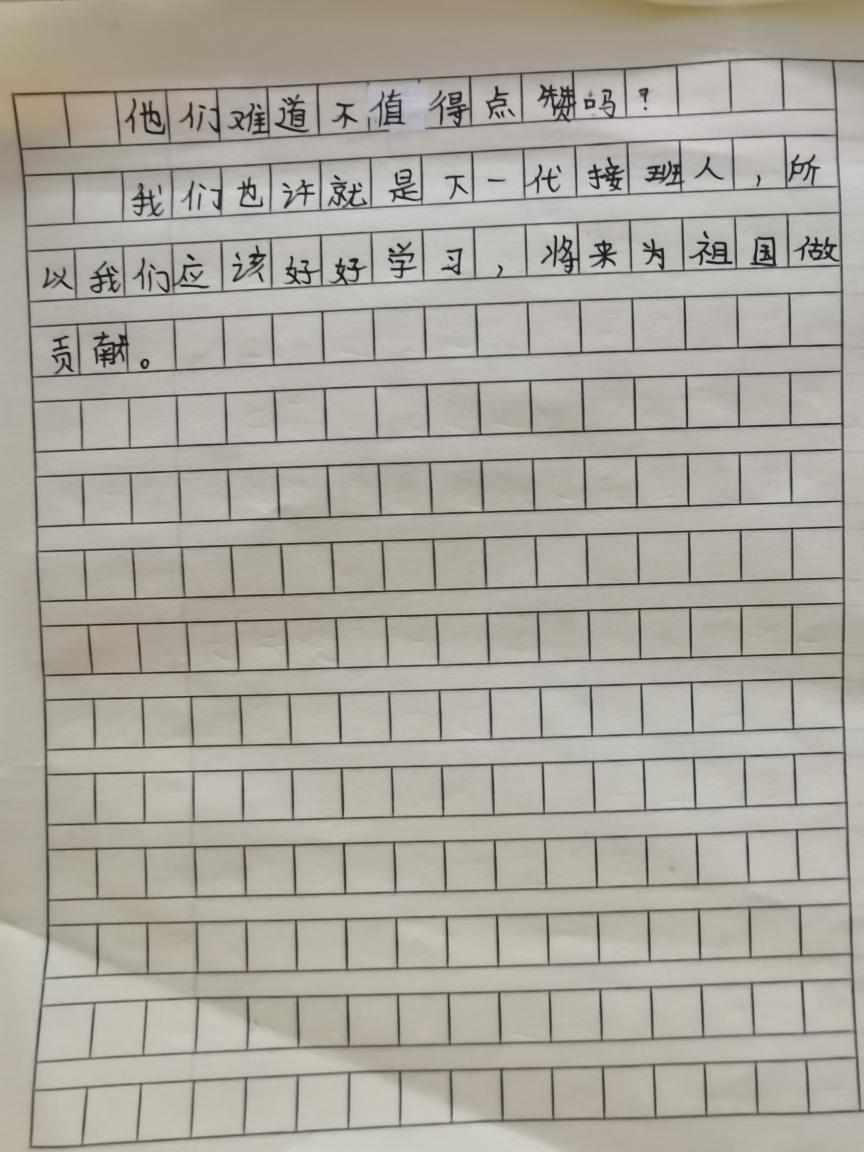 他们难道不值得点赞吗？
我们也许就是下一代接班人，所
以我们应该好好学习，将来为祖国做
贡献。